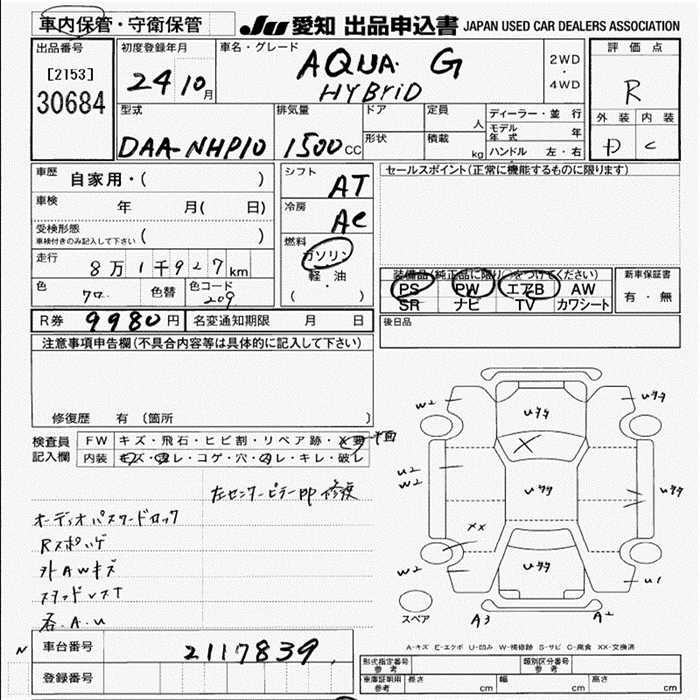 車内保管・守衛保管 JU 愛知 出品申込書 JAPAN USED CAR DEALERS ASSOCIATION
出品番号 [2153] 30684
初度登録年月 24 10月
車名・グレード AQUA G HYBRiD
2WD・4WD
評価点 R
外装 D 内装 C
型式 DAA-NHP10
排気量 1500cc
ドア 形状
定員 人 積載 kg
ディーラー・並行
モデル年式 年
ハンドル 左・右
車歴 自家用・( )
車検 年 月( 日)
受検形態 車検付きのみ記入して下さい ( )
走行 8万1千927km
色 クロ 色替 色コード 209
シフト AT
冷房 AC
燃料 ガソリン 軽・油 ( )
セールスポイント(正常に機能するものに限ります)
装備品(純正品に限り○をつけてください)
PS PW エアB AW
SR ナビ TV カワシート
新車保証書 有・無
R券 9980円 名変通知期限 月 日
後日品
注意事項申告欄(不具合内容等は具体的に記入して下さい)
修復歴 有 (箇所 )
検査員記入欄
FW キズ・飛石・ヒビ割・リペア跡・×要
内装 キズ・汚レ・コゲ・穴・スレ・キレ・破レ
左センターピラーPP 修復
オーディオパスワードロック
Rスポハゲ
外AWキズ
スタッドレスT
各.A.U
車台番号 2117839
登録番号
W2 U44
U44
U2
W2
U44
XX
W2
U44
U1
A3 A2
スペア
A-キズ E-エクボ U-凹み W-補修跡 S-サビ C-腐食 XX-交換済
形式指定番号 参考 類別区分番号 参考
車庫証明用 参考 長さ cm 幅 cm 高さ cm